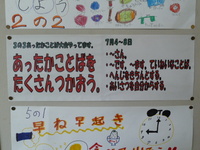 しよう
2の2
3の3あったかことば大会やってます。
あったかことばを
たくさんつかおう。
7月4~8日
・~さん。
・~です、~ます。ていねいなことば。
・へんじをきちんとする。
・あいさつを自分からする。
5の1
早ね早起き